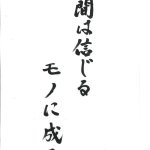 間は信じる
モノに成